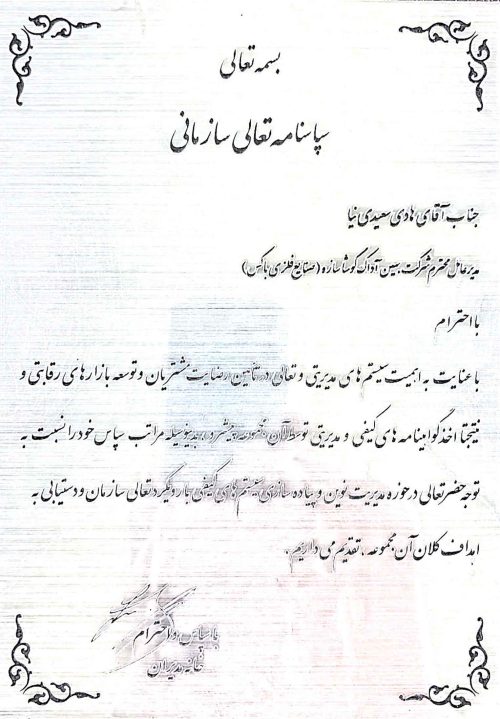 بسمه تعالی
سپاسنامه تعالی سازمانی
جناب آقای هادی سعیدی نیا
مدیرعامل محترم شرکت بهین آداک کوشا سازه (صنایع فلزی باکس)
با احترام
با عنایت به اهمیت سیستم های مدیریتی و تعالی در تأمین رضایت مشتریان و توسعه بازارهای رقابتی و
نتیجتا اخذ گواهینامه های کیفی و مدیریتی توسط آن مجموعه پیشرو، بدینوسیله مراتب سپاس خود را نسبت به
توجه حضرتعالی در حوزه مدیریت نوین و پیاده سازی سیستم های کیفی با رویکرد تعالی سازمان و دستیابی به
اهداف کلان آن مجموعه، تقدیم می داریم.
با سپاس و احترام
خانه مدیران